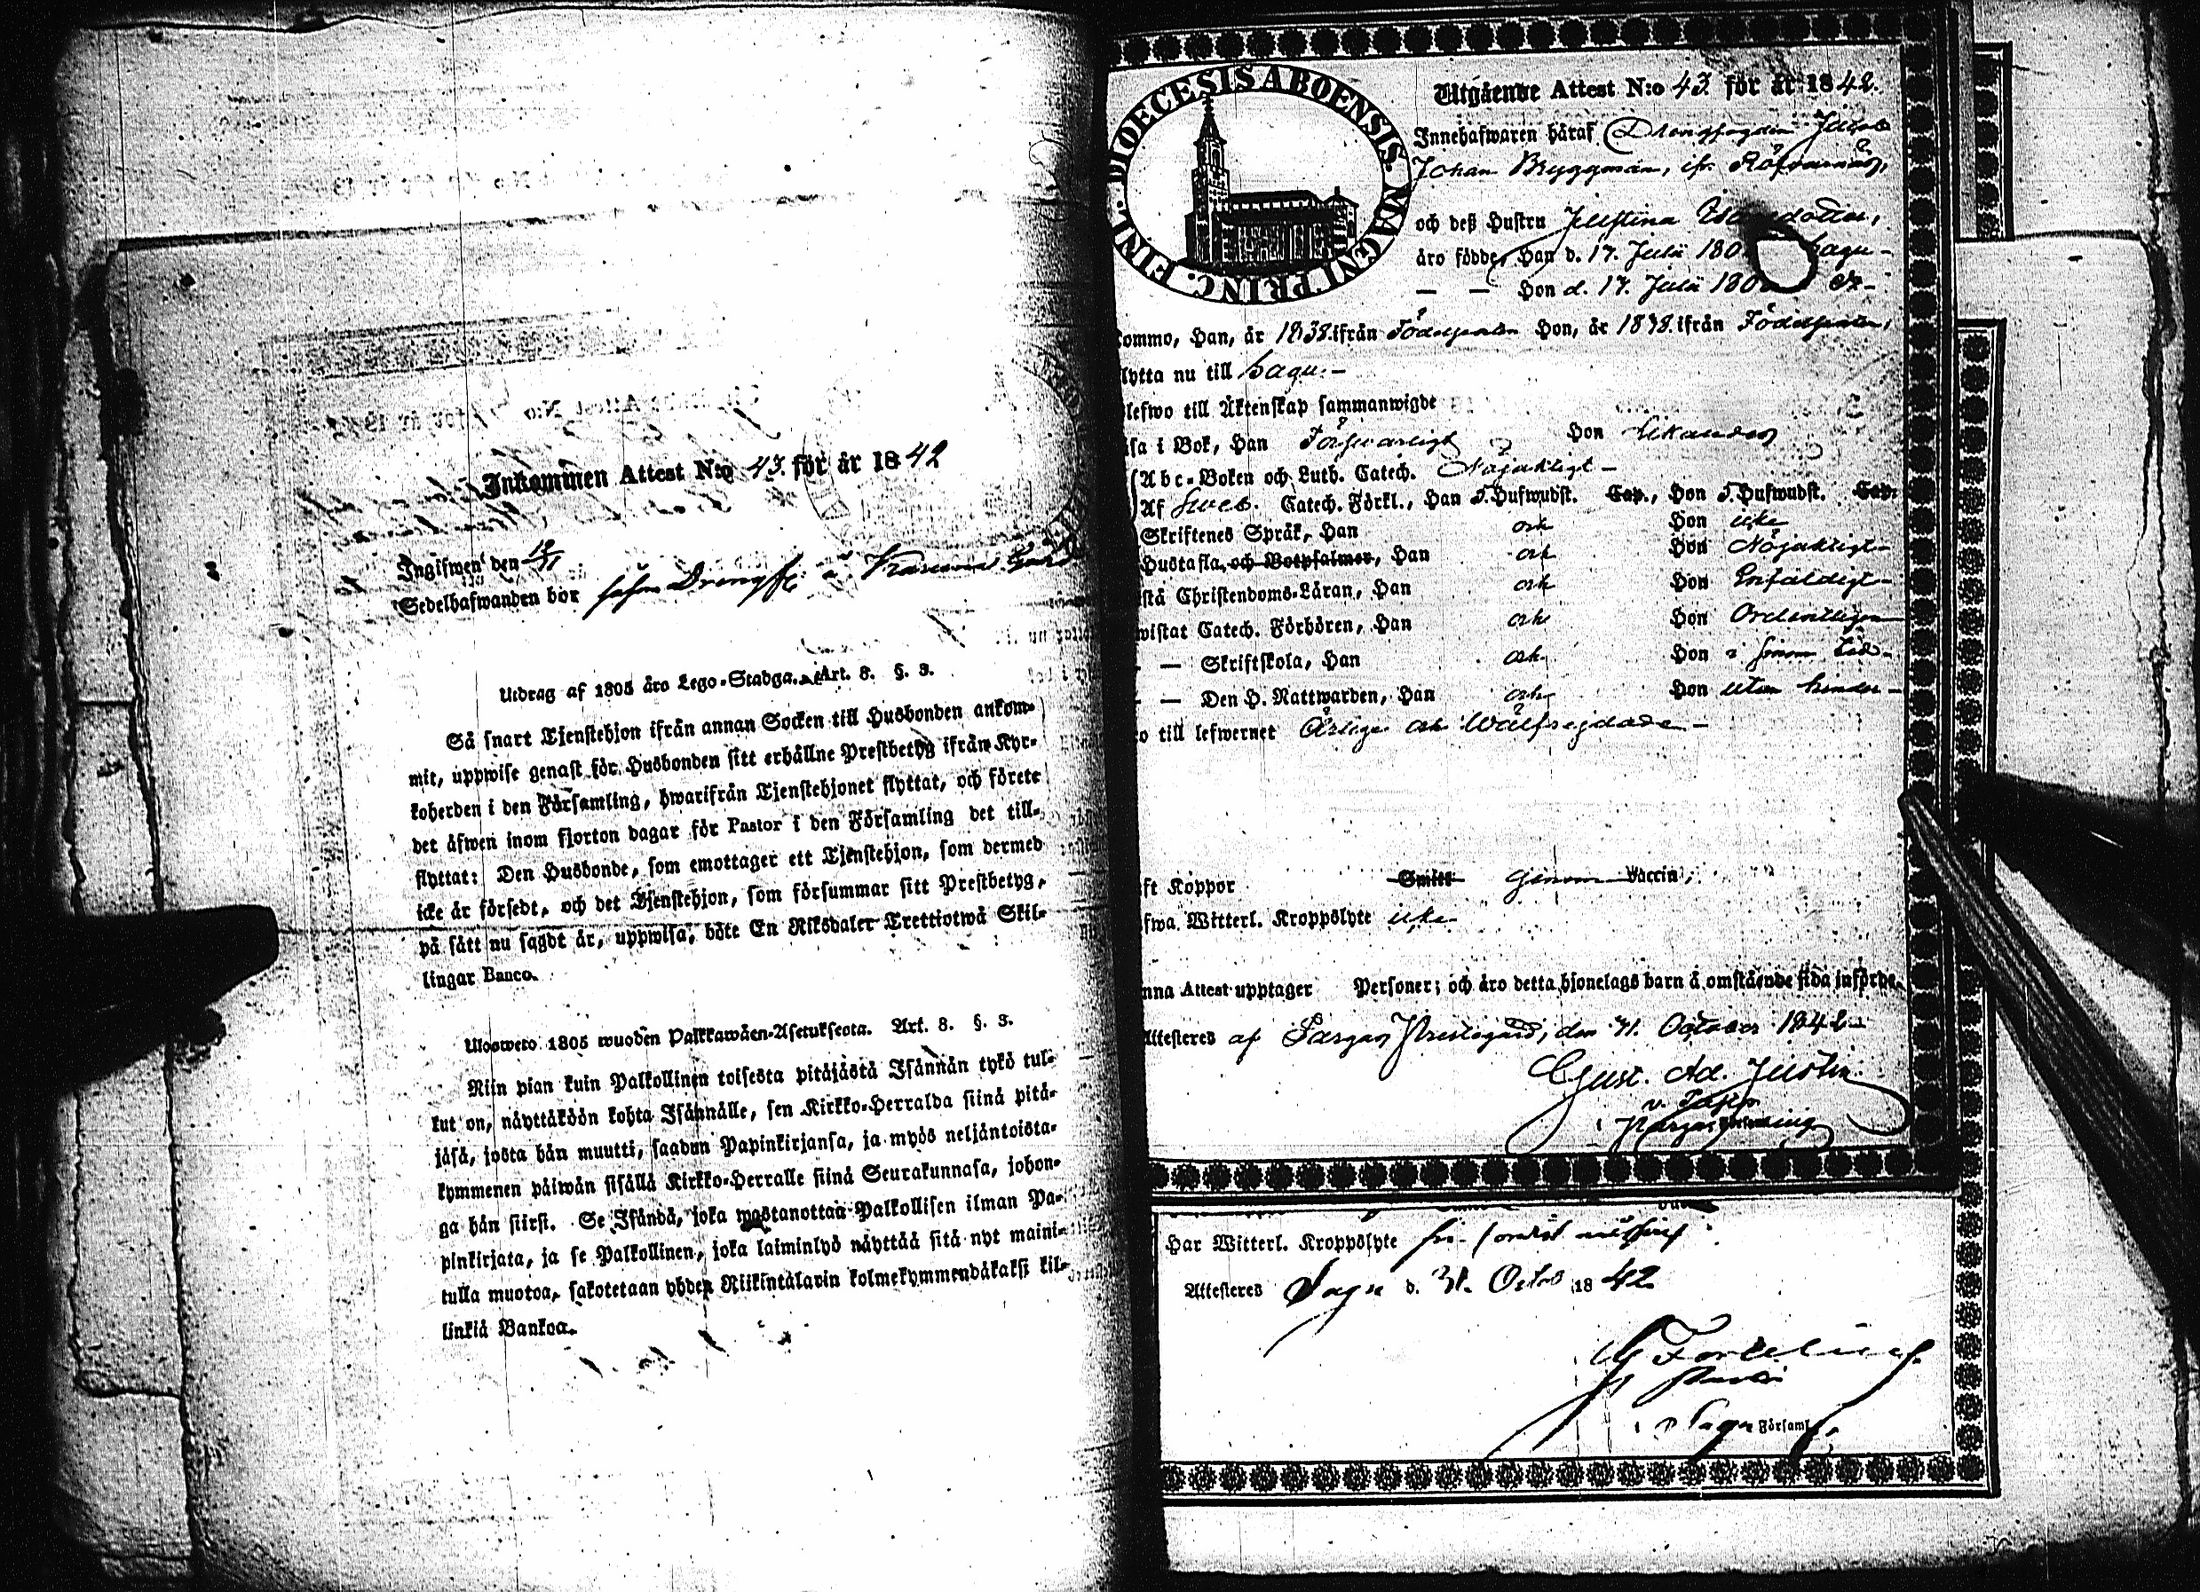 Inkommen Attest N:o 43. för år 1842
Ingifwen den
Sedelhafwanden bor såsom Drengf. å Karuna Gård
Utdrag af 1805 års Lego-Stadga. Art. 8. §. 3.
Så snart Tjenstehjon ifrån annan Socken till Husbonden ankom-
mit, uppwise genast för Husbonden sitt erhållne Prestbetyg ifrån Kyr-
koherden i den Församling, hwarifrån Tjenstehjonet flyttat, och förete
det äfwen inom fjorton dagar för Pastor i den Församling det till-
flyttat: Den Husbonde, som emottager ett Tjenstehjon, som dermed
icke är försedt, och det Tjenstehjon, som försummar sitt Prestbetyg,
på sätt nu sagdt är, uppwisa, böte En Riksdaler Trettiotwå Skil-
lingar Banco.
Ulosweto 1805 wuoden Palkkawäen-Asetuksesta. Art. 8. §. 3.
Niin pian kuin Palkollinen toisesta pitäjästä Isännän tykö tul-
lut on, näyttäköön kohta Isännälle, sen Kirkko-Herralda siinä pitä-
jäsä, josta hän muutti, saadun Papinkirjansa, ja myös neljäntoista-
kymmenen päiwän sisällä Kirkko-Herralle siinä Seurakunnasa, johon-
ga hän siirsi. Se Isändä, joka wastanottaa Palkollisen ilman Pa-
pinkirjata, ja se Palkollinen, joka laiminlyö näyttää sitä nyt maini-
tulla muotoa, sakotetaan yhden Riikintalarin kolmekymmendäkaksi kil-
linkiä Bankoa.
FINL. DIOECESIS ABOENSIS MAGNI PRINC.
Utgående Attest N:o 43. för år 1842.
Innehafwaren häraf Drengfogden Jacob
Johan Bryggman, ifr.
och deß Hustru Justina
äro födde, Han d. 17. Julii 180 Sagu-
— — Hon d. 17. Julii 180
kommo, Han, år 1838. ifrån Födelseorten Hon, år 1838. ifrån Födelseorten,
flytta nu till Sagu.-
blefwo till Äktenskap sammanwigde
läsa i Bok, Han Förswarligt Hon
Abc-Boken och Luth. Catech. Nöjaktigt-
Af Sweb. Catech. Förkl., Han 5. Hufwudst. Cap., Hon 5. Hufwudst. Cap.
Skriftenes Språk, Han och Hon icke
Hustafla, och Botpsalmer, Han och Hon Nöjaktigt-
förstå Christendoms-Läran, Han och Hon Enfaldigt-
bewistat Catech. Förhören, Han och Hon Ordentligen
— — Skriftskola, Han och Hon i sinom tid-
— — Den H. Nattwarden, Han och Hon utan hinder-
äro till lefwernet Ärlige och Wälfrejdade-
haft Koppor Smitt genom Vaccin;
hafwa Witterl. Kroppslyte icke.
Denna Attest upptager Personer; och äro detta hjonelags barn å omstående sida införde.
Attesteres af Pargas Prestegård, den 31. October 1842-
Gust. Ad. Justin.
v. Past.
i Pargas Församling
Har Witterl. Kroppslyte
Attesteres Sagu d. 31. Octob 1842
Pastor
i Sagu Församl.